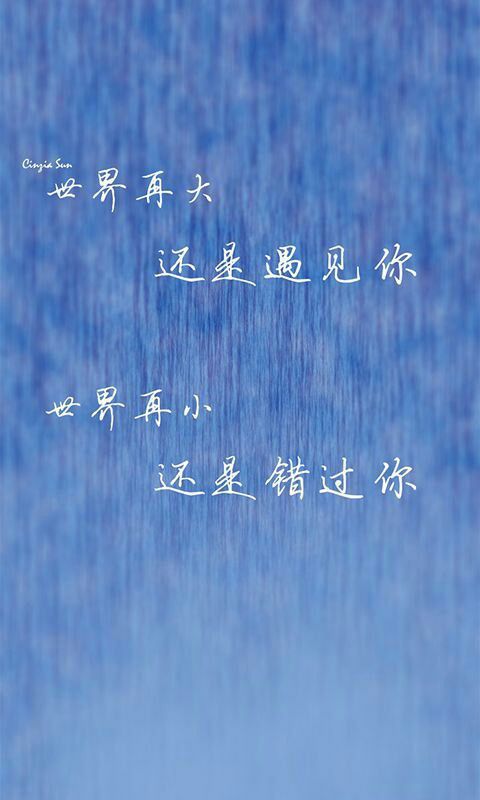 Cinzia Sun
世界再大
还是遇见你
世界再小
还是错过你